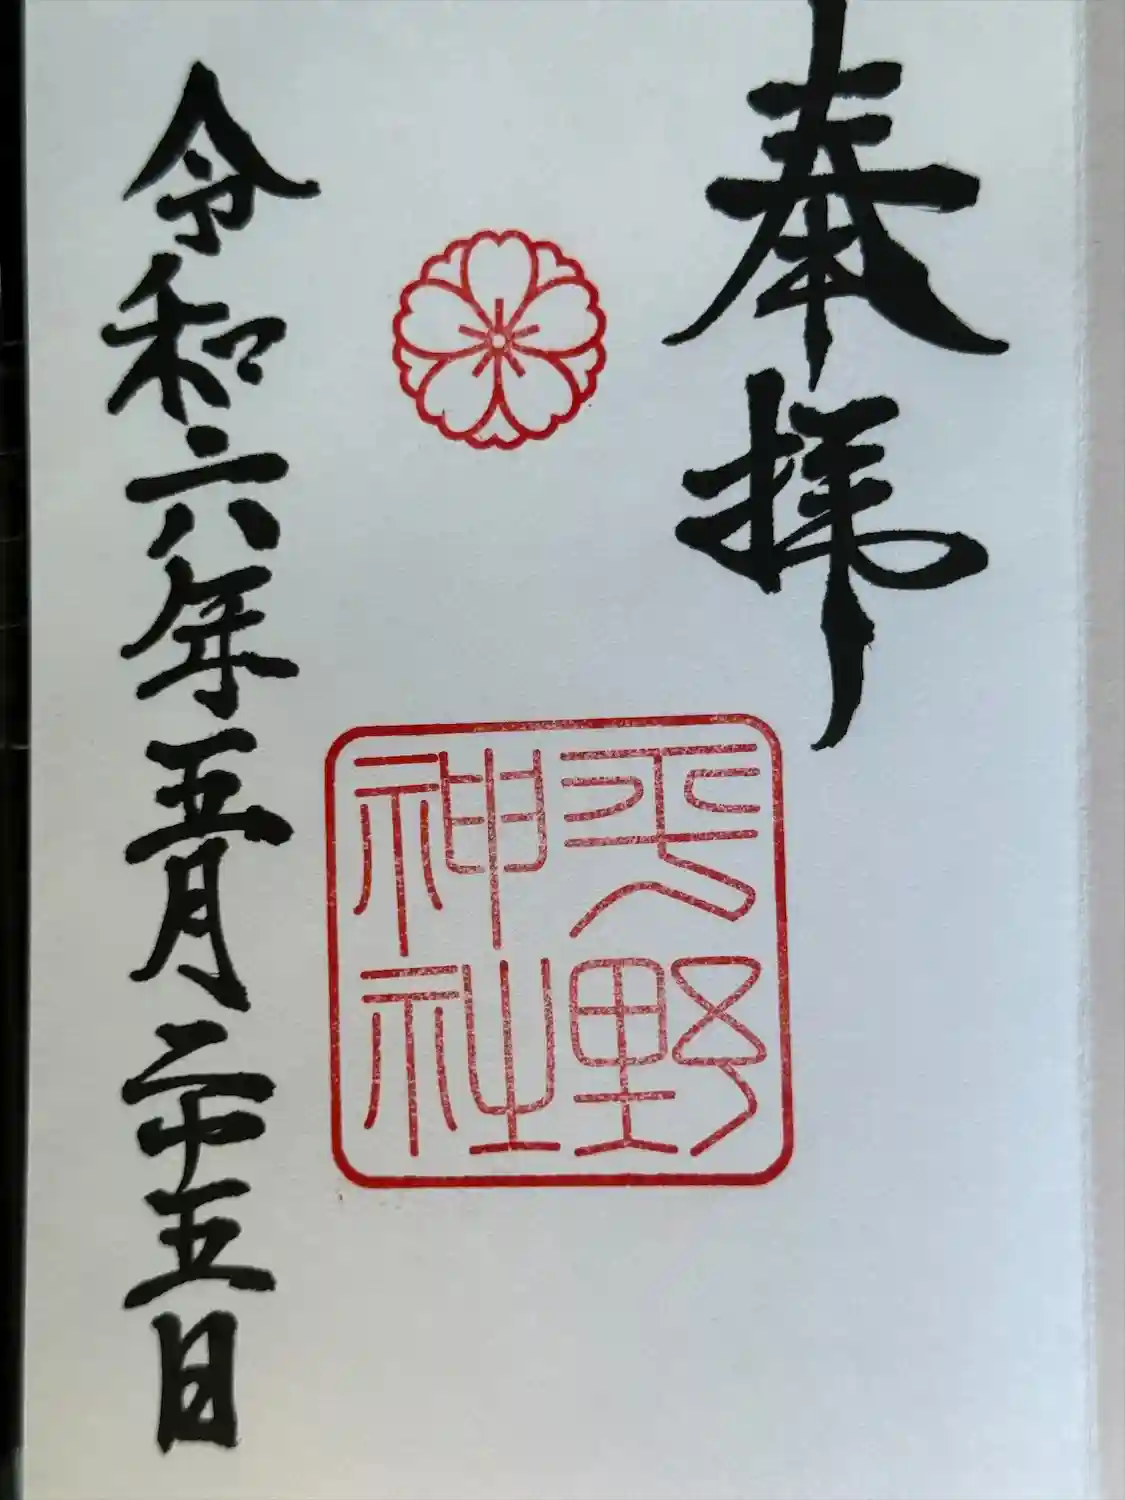 奉拝
平野神社
令和六年五月二十五日